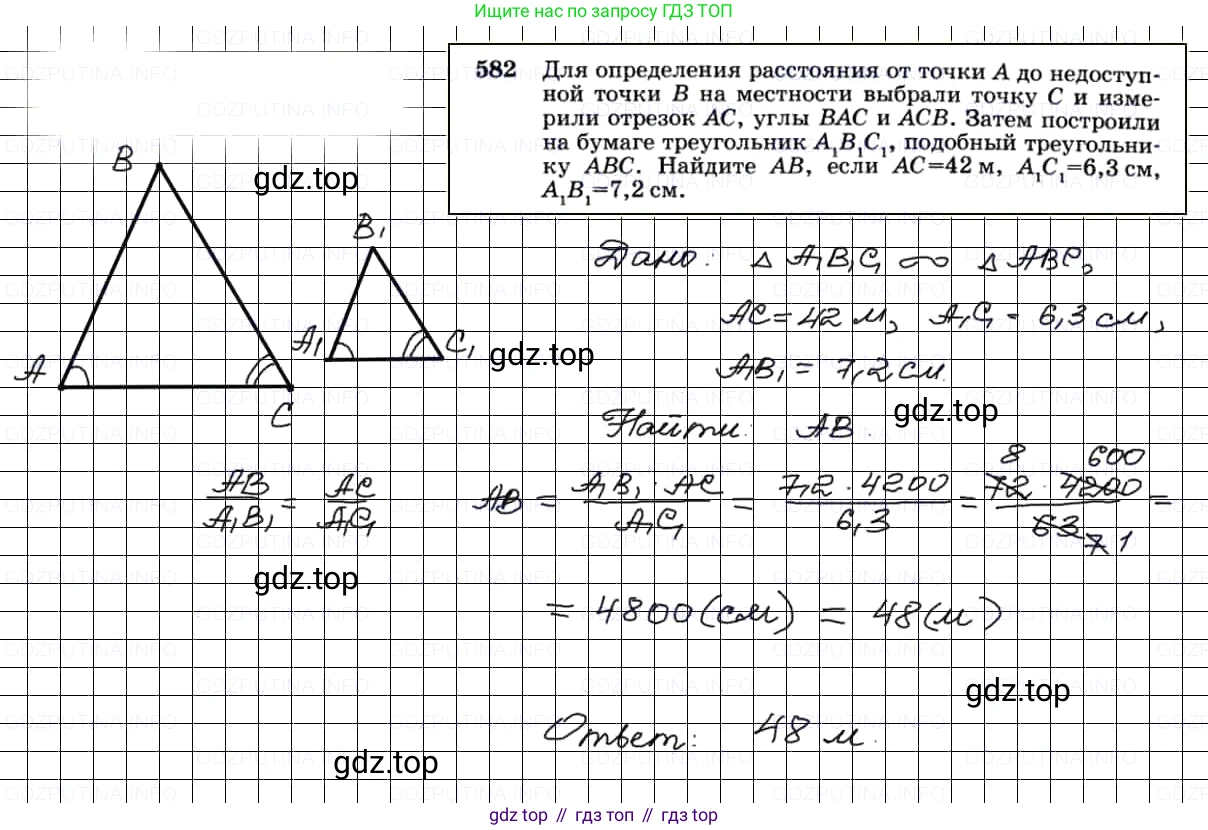 Ищите нас по запросу ГДЗ ТОП
582 Для определения расстояния от точки A до недоступ-
ной точки B на местности выбрали точку C и изме-
рили отрезок AC, углы BAC и ACB. Затем построили
на бумаге треугольник A₁B₁C₁, подобный треугольни-
ку ABC. Найдите AB, если AC=42 м, A₁C₁=6,3 см,
A₁B₁=7,2 см.
B
gdz.top
B₁
A
C
A₁
C₁
gdz.top
Дано: △ A₁B₁C₁ ∞ △ ABC,
AC = 42 м, A₁C₁ = 6,3 см,
A₁B₁ = 7,2 см.
gdz.top
Найти: AB.
AB/A₁B₁ = AC/A₁C₁ AB = A₁B₁ · AC/A₁C₁ = 7,2 · 4200/6,3 = 72 · 4200/63 =
8 600
7 1
gdz.top
= 4800 (см) = 48 (м)
gdz.top
Ответ: 48 м.
gdz.top
gdz top // гдз топ // gdz top
GDZPUTINA.INFO